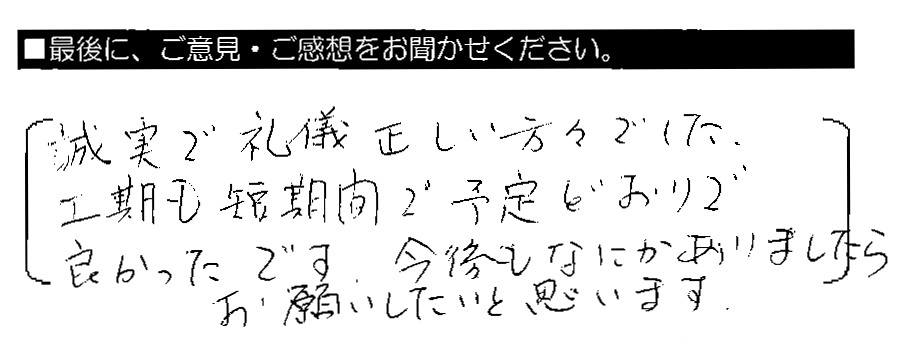 ■最後に、ご意見・ご感想をお聞かせください。
誠実で礼儀正しい方々でした.
工期も短期間で予定どおりで
良かったです. 今後もなにかありましたら
お願いしたいと思います.